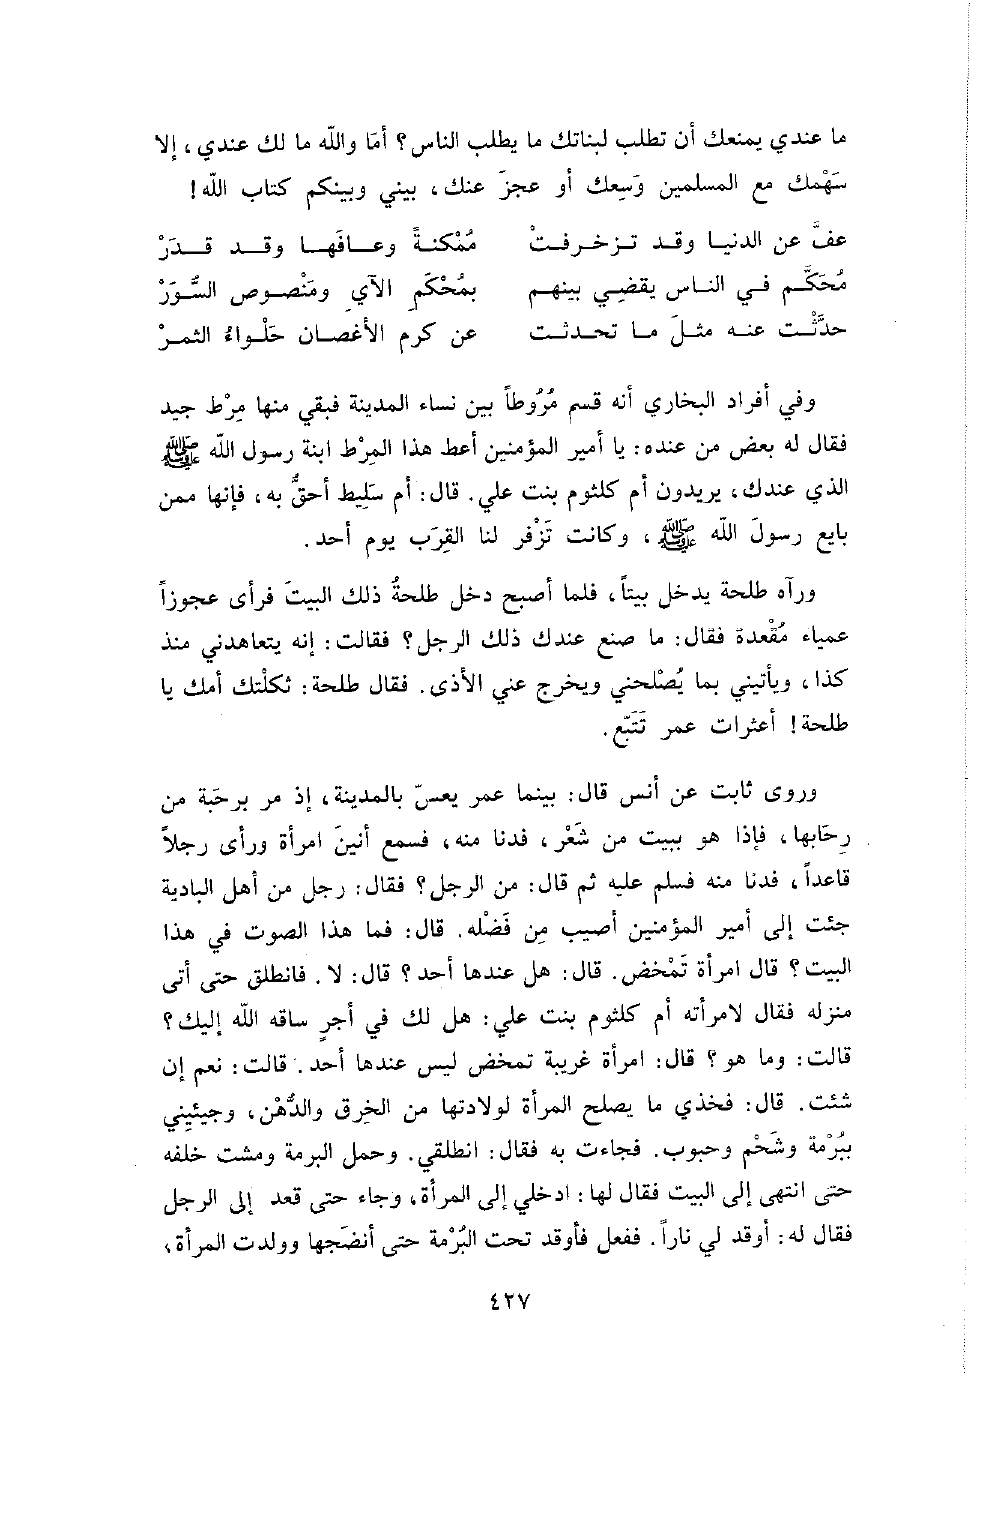 ما عندي يمنعك أن تطلب لبناتك ما يطلب الناس؟ أمَا والله ما لك عندي، إلا
سَهْمك مع المسلمين وَسِعك أو عجزَ عنك، بيني وبينكم كتاب الله!
عفَّ عن الدنيا وقد تزخرفتْ مُمْكنةً وعافَها وقد قدَرْ
مُحَكَّم في الناس يقضي بينهم بمُحْكَمِ الآي ومَنْصوص السُّوَرْ
حدَّثت عنه مثلَ ما تحدثت عن كرم الأغصان حَلْواءُ الثمرْ
وفي أفراد البخاري أنه قسم مُرُوطاً بين نساء المدينة فبقي منها مِرْط جيد
فقال له بعض من عنده: يا أمير المؤمنين أعط هذا المِرْط ابنة رسول الله ﷺ
الذي عندك، يريدون أم كلثوم بنت علي. قال: أم سَلِيط أحقُّ به، فإنها ممن
بايع رسولَ الله ﷺ، وكانت تَزْفر لنا القِرَب يوم أحد.
ورآه طلحة يدخل بيتاً، فلما أصبح دخل طلحةُ ذلك البيتَ فرأى عجوزاً
عمياء مُقْعدة فقال: ما صنع عندك ذلك الرجل؟ فقالت: إنه يتعاهدني منذ
كذا، ويأتيني بما يُصْلحني ويخرج عني الأذى. فقال طلحة: ثكلْتك أمك يا
طلحة! أعثرات عمر تَتَبّع.
وروى ثابت عن أنس قال: بينما عمر يعسّ بالمدينة، إذ مر برحَبة من
رِحَابها، فإذا هو ببيت من شَعْر، فدنا منه، فسمع أنينَ امرأة ورأى رجلاً
قاعداً، فدنا منه فسلم عليه ثم قال: من الرجل؟ فقال: رجل من أهل البادية
جئت إلى أمير المؤمنين أصيب مِن فَضْله. قال: فما هذا الصوت في هذا
البيت؟ قال امرأة تَمْخض. قال: هل عندها أحد؟ قال: لا. فانطلق حتى أتى
منزله فقال لامرأته أم كلثوم بنت علي: هل لك في أجرٍ ساقه الله إليك؟
قالت: وما هو؟ قال: امرأة غريبة تمخض ليس عندها أحد. قالت: نعم إن
شئت. قال: فخذي ما يصلح المرأة لولادتها من الخِرق والدُّهْن، وجيئيني
ببُرْمة وشَحْم وحبوب. فجاءت به فقال: انطلقي. وحمل البرمة ومشت خلفه
حتى انتهى إلى البيت فقال لها: ادخلي إلى المرأة، وجاء حتى قعد إلى الرجل
فقال له: أوقد لي ناراً. ففعل فأوقد تحت البُرْمة حتى أنضَجها وولدت المرأة،
٤٢٧